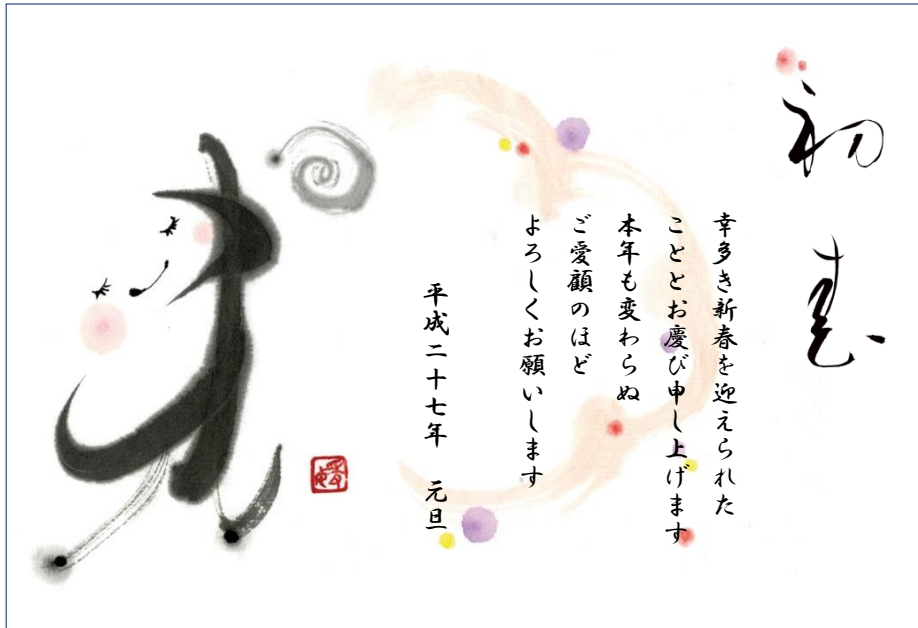 初春
幸多き新春を迎えられた
こととお慶び申し上げます
本年も変わらぬ
ご愛顧のほど
よろしくお願いします
平成二十七年 元旦
未